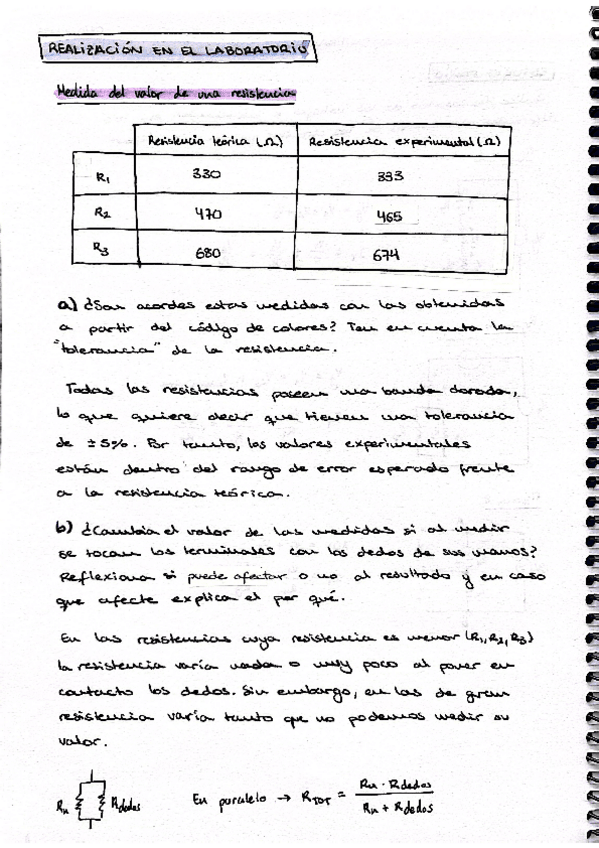 REALIZACIÓN EN EL LABORATORIO
Medida del valor de una resistencia
Resistencia teórica (Ω) Resistencia experimental (Ω)
R1 330 333
R2 470 465
R3 680 674
a) ¿Son acordes estas medidas con las obtenidas
a partir del código de colores? Ten en cuenta la
"tolerancia" de la resistencia.
Todas las resistencias poseen una banda dorada,
lo que quiere decir que tienen una tolerancia
de ±5%. Por tanto, los valores experimentales
están dentro del rango de error esperado frente
a la resistencia teórica.
b) ¿Cambia el valor de las medidas si al medir
se tocan los terminales con los dedos de sus manos?
Reflexiona si puede afectar o no al resultado y en caso
que afecte explica el por qué.
En las resistencias cuya resistencia es menor (R1, R2, R3)
la resistencia varía nada o muy poco al poner en
contacto los dedos. Sin embargo, en las de gran
resistencia varía tanto que no podemos medir su
valor.
Rn Rdedos En paralelo → RTOT = Rn · Rdedos / Rn + Rdedos